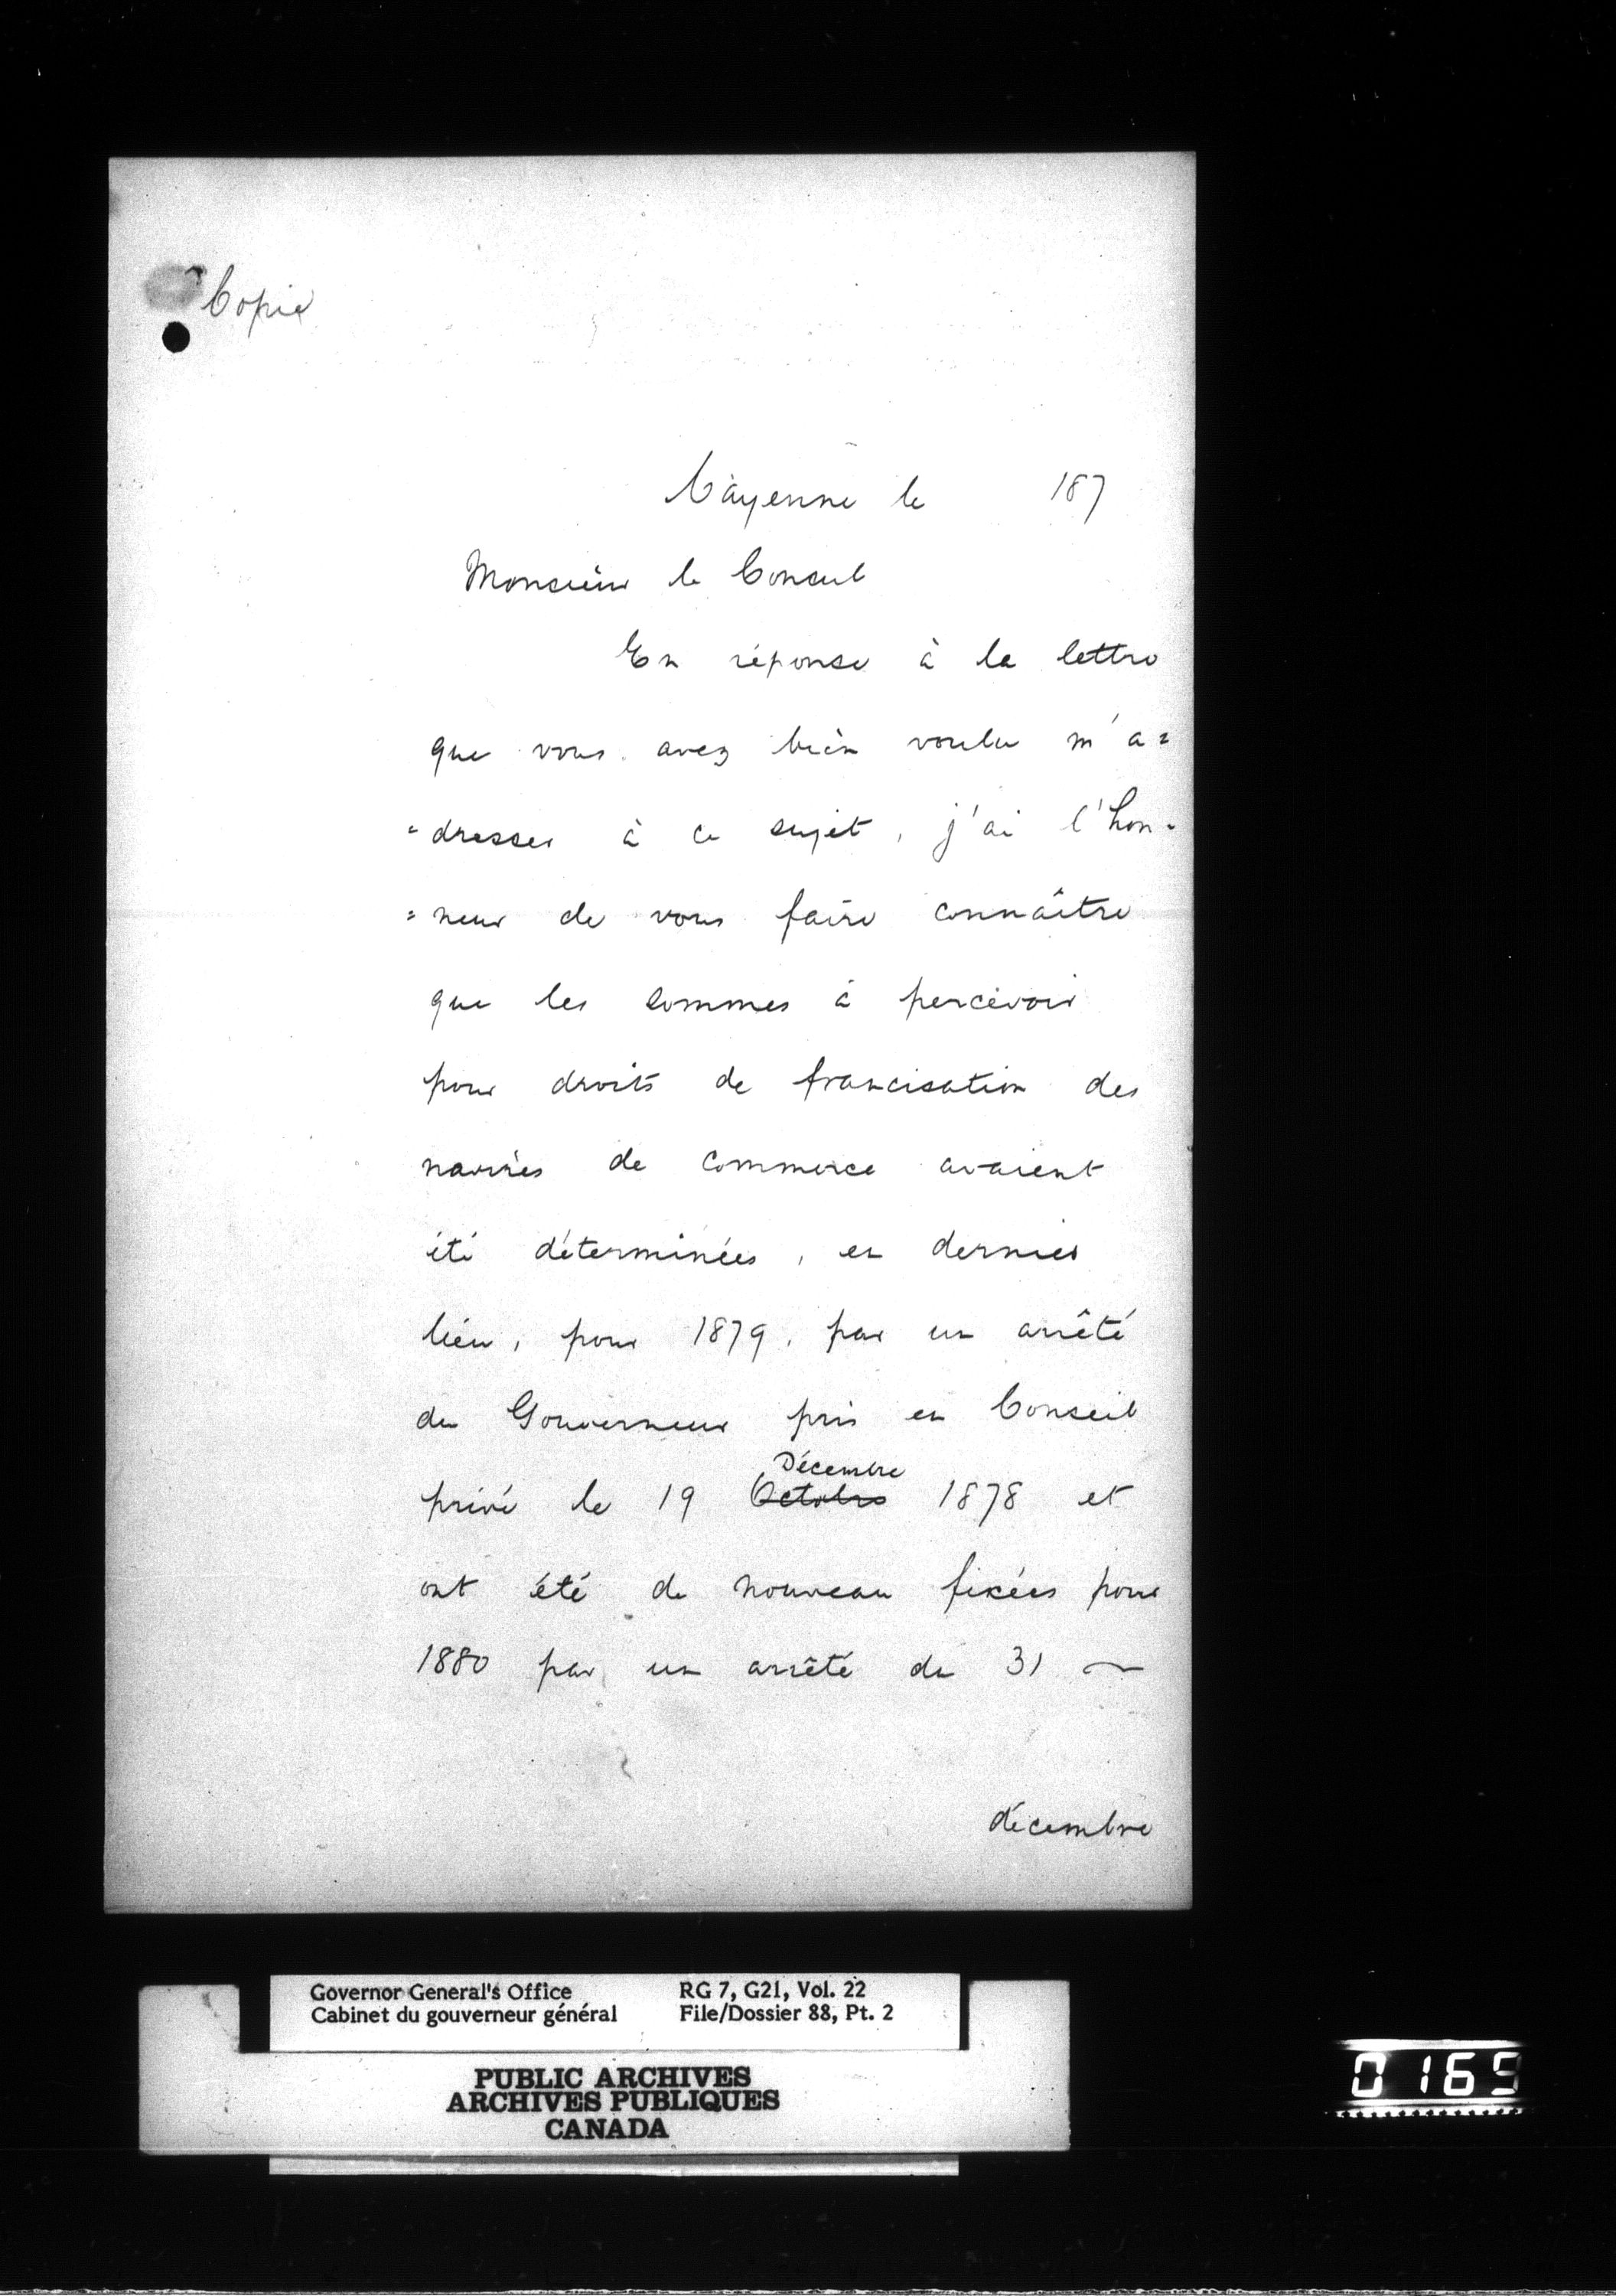 Copie
Cayenne le 187
Monsieur le Consul
En réponse à la lettre
que vous avez bien voulu m'a=
=dresser à ce sujet, j'ai l'hon=
=neur de vous faire connaître
que les sommes à percevoir
pour droits de francisation des
navires de commerce avaient
été déterminées, en dernier
lieu, pour 1879, par un arrêté
du Gouverneur pris en Conseil
Décembre
privé le 19 Octobre 1878 et
ont été de nouveau fixées pour
1880 par un arrêté du 31
décembre
Governor General's Office RG 7, G21, Vol. 22
Cabinet du gouverneur général File/Dossier 88, Pt. 2
PUBLIC ARCHIVES
ARCHIVES PUBLIQUES
CANADA
0169